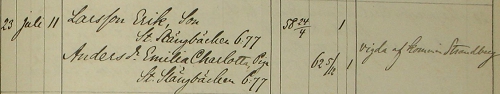 23 juli 11 Larsson Erik, Son 58 24/4 1
St. Stångbäcken 6.77
Anders d. Emilia Charlotta, Pga 62 5/12 1 vigda af komm. Strandberg
St. Stångbäcken 6.77